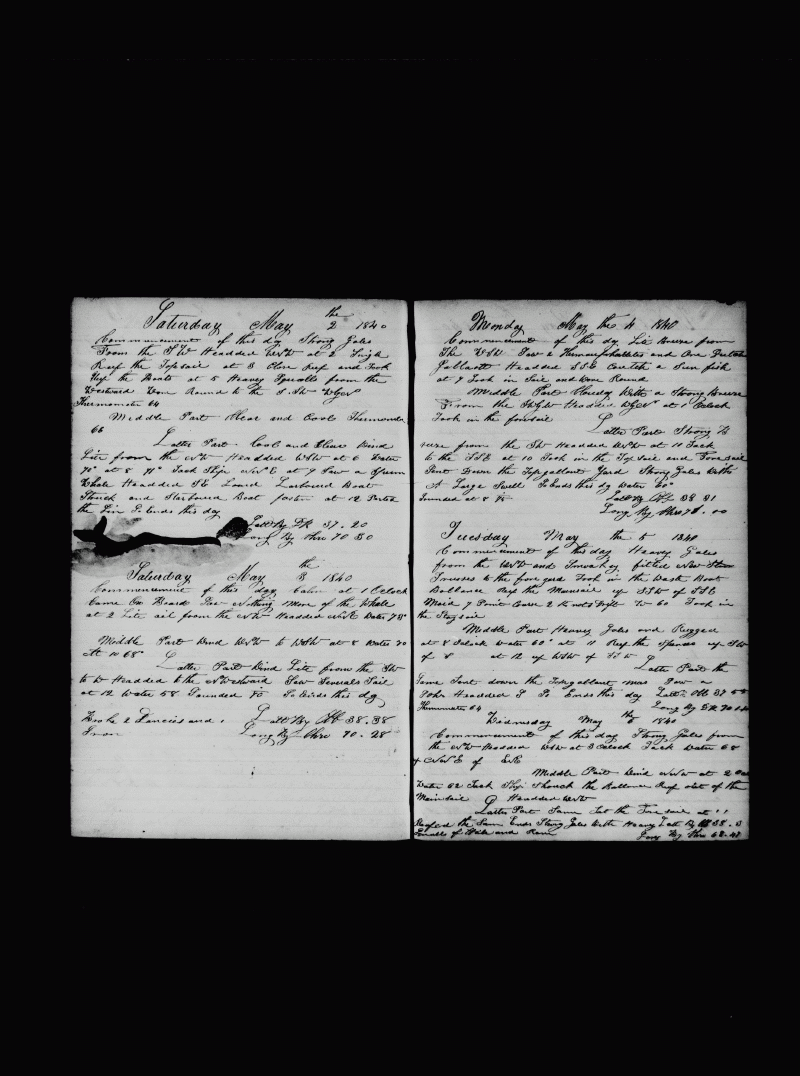 Saturday May the 2 1840
Commencement of this day Strong Gales
From the SW Headded WNW at 2 Single
Reef the Topsail at 3 Close Reef and Took
up the Boats at 5 Heavey Squalls from the
Westward Wore Round to the S.
Thermometer 64
Middle Part Clear and Cool Thermometer
66
Latter Part Cool and Clear Wind
Lite from the NW Headded WSW at 6 Water
70° at 8 71° Tack Ship at 9 Saw a Sperm
Whale Headded SE Lowed Larboard Boat
Struck and Starboard Boat fasten at 12 Parted
the Line So Ends this day
Latt By DR 37.20
Long By Chro 70 50
Saturday May the 3 1840
Commencement of this day Calm at 1 Oclock
Came On Board Saw Nothing More of the Whale
at 2 Lite air from the NW Headded Water 75°
Middle Part Wind WNW to WSW at 8 Water 70
At 10 68
Latter Part Wind Lite from the SW
to W Headded to the NWestward Saw Severals Sail
at 12 Water 58 Sounded 85 So Ends this day
Broke 2 Lances and 1 Latt By Ob 38.38
Iron Long By Chro 70.28
Monday May the 4 1840
Commencement of this day Lite Breeze from
The WSW Saw 2 and One
Headded SSE Caught a Sun fish
at 7 Took in Sail and Wore Round
Middle Part Cloudy With a Strong Breeze
From the Headded at 1 Oclock
Took in the foresail
Latter Part Strong B
reeze from the SW Headded WNW at 11 Tack
to the SSE at 10 Took in the Top Sail and Fore sail
Sent Down the Topgallant Yard Strong Gales With
A Large Swell So Ends this day Water 60°
Sounded at 8 85 Latt By Ob 38 31
Long By Chro 71.00
Tuesday May the 5 1840
Commencement of this day Heavey Gales
from the WSW and Smokey fitted New
Trusses to the fore yard Took in the Waist Boat
Ballance Reef the Mainsail up SSW of SSE
Maid 7 Point Course 2 Knots Drift W 60 Took in
the Staysail
Middle Part Heavey Gales and Rugged
at 8 Oclock Water 60° at 11 Reef the Spencer up SW
of S at 12 up WSW of SSW
Latter Part the
Same Sent down the Topgallant mas Saw a
Headded S So Ends this day Latt Ob 37 58
Thermometer 64 Long By DR 70
Wednesday May the 6 1840
Commencement of this day Strong Gales from
the NW Headded WSW at 3 Oclock Tack Water 68
up NNE of ENE
Middle Part Wind NNW at 2 Oc
Water 62 Tack Ship Shook the Ballance Reef out of the
Mainsail Headded WSW
Latter Part Same Set the Fore sail at 11
Reefed the Same Ends Strong Gales With Heavey Latt By Ob 38.
Squalls of Hale and Rain Long By Chro 68.48